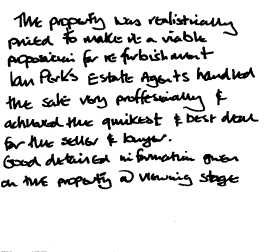 The property was realistically
priced to make it a viable
proposition for refurbishment
Ian Perks Estate Agents handled
the sale very proffesionally &
achieved the quikest & best deal
for the seller & buyer.
Good detailed information given
on the property @ viewing stage